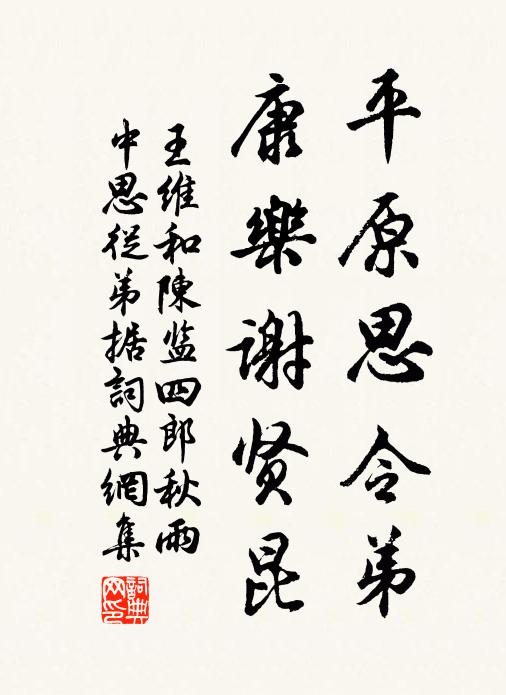 平原思令弟
康樂谢贤昆
王維和陳监四郎秋雨
中思從弟据詞典網集
詞典
网印